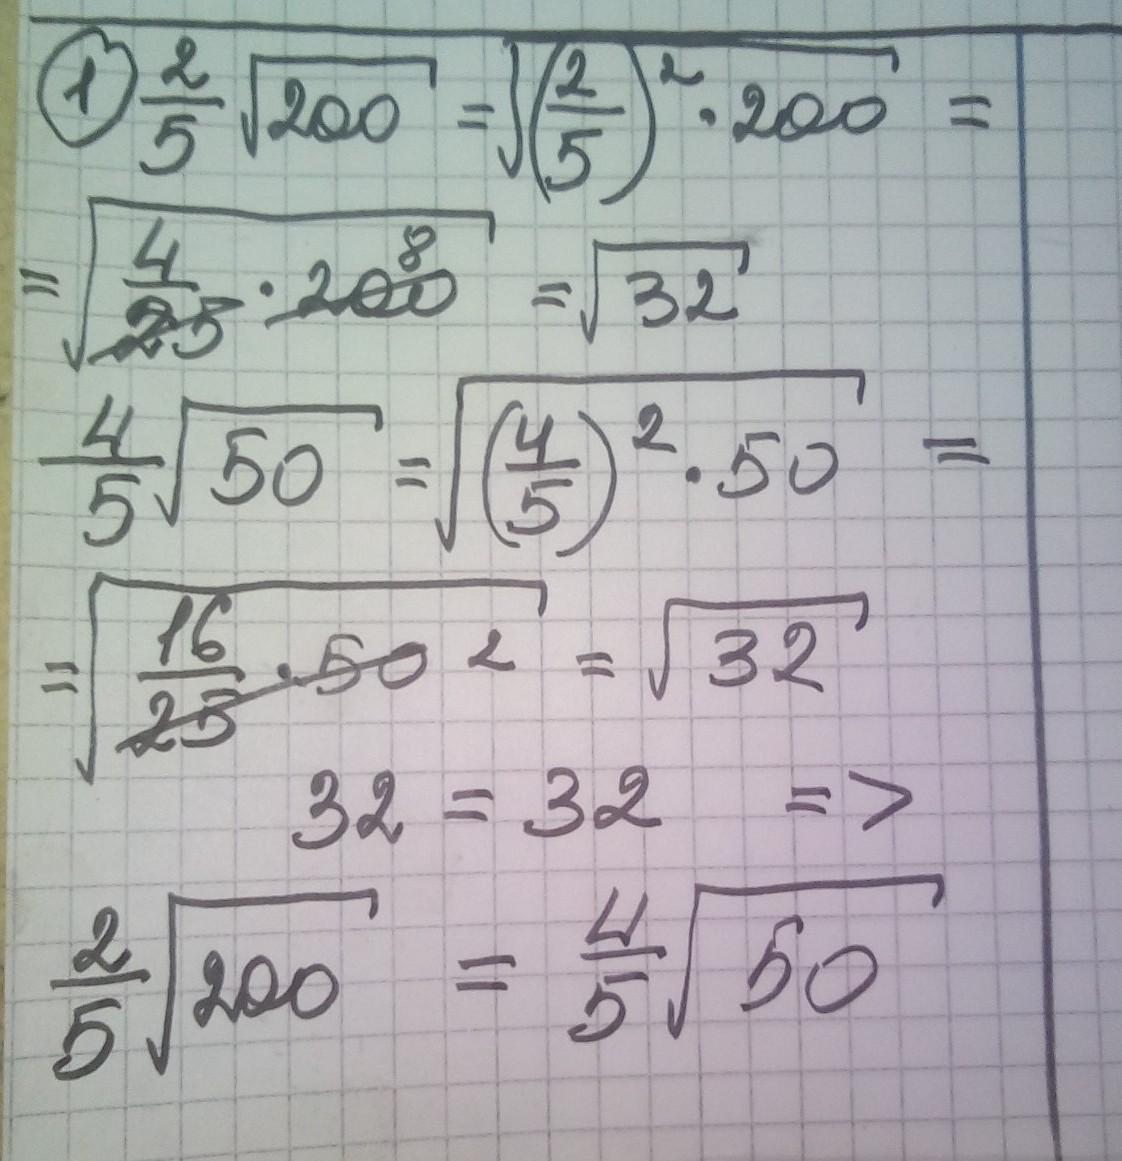 ① 2/5 √200 = √((2/5)² · 200) =
= √(4/25 · 200 8) = √32
4/5 √50 = √((4/5)² · 50) =
= √(16/25 · 50 2) = √32
32 = 32 =>
2/5 √200 = 4/5 √50